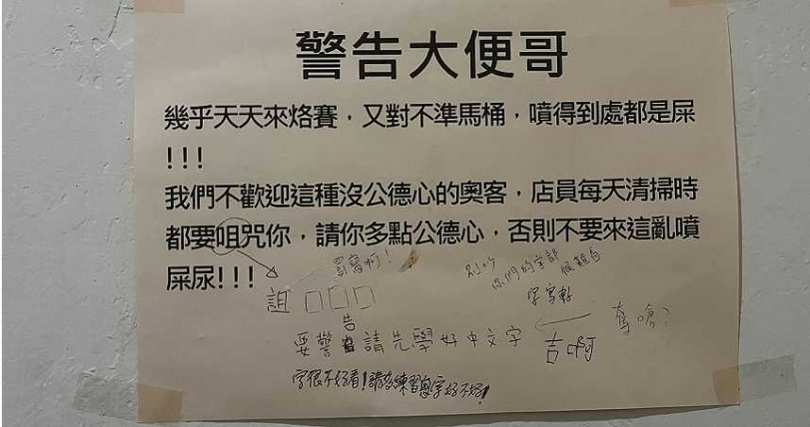 警告大便哥
幾乎天天來烙賽，又對不準馬桶，噴得到處都是屎
!!!
我們不歡迎這種沒公德心的奧客，店員每天清掃時
都要咀咒你，請你多點公德心，否則不要來這亂噴
屎尿!!!
詛
你們的字都
字寫好
要警告請先學好中文字
字很不好看!請多練習寫字好不好!